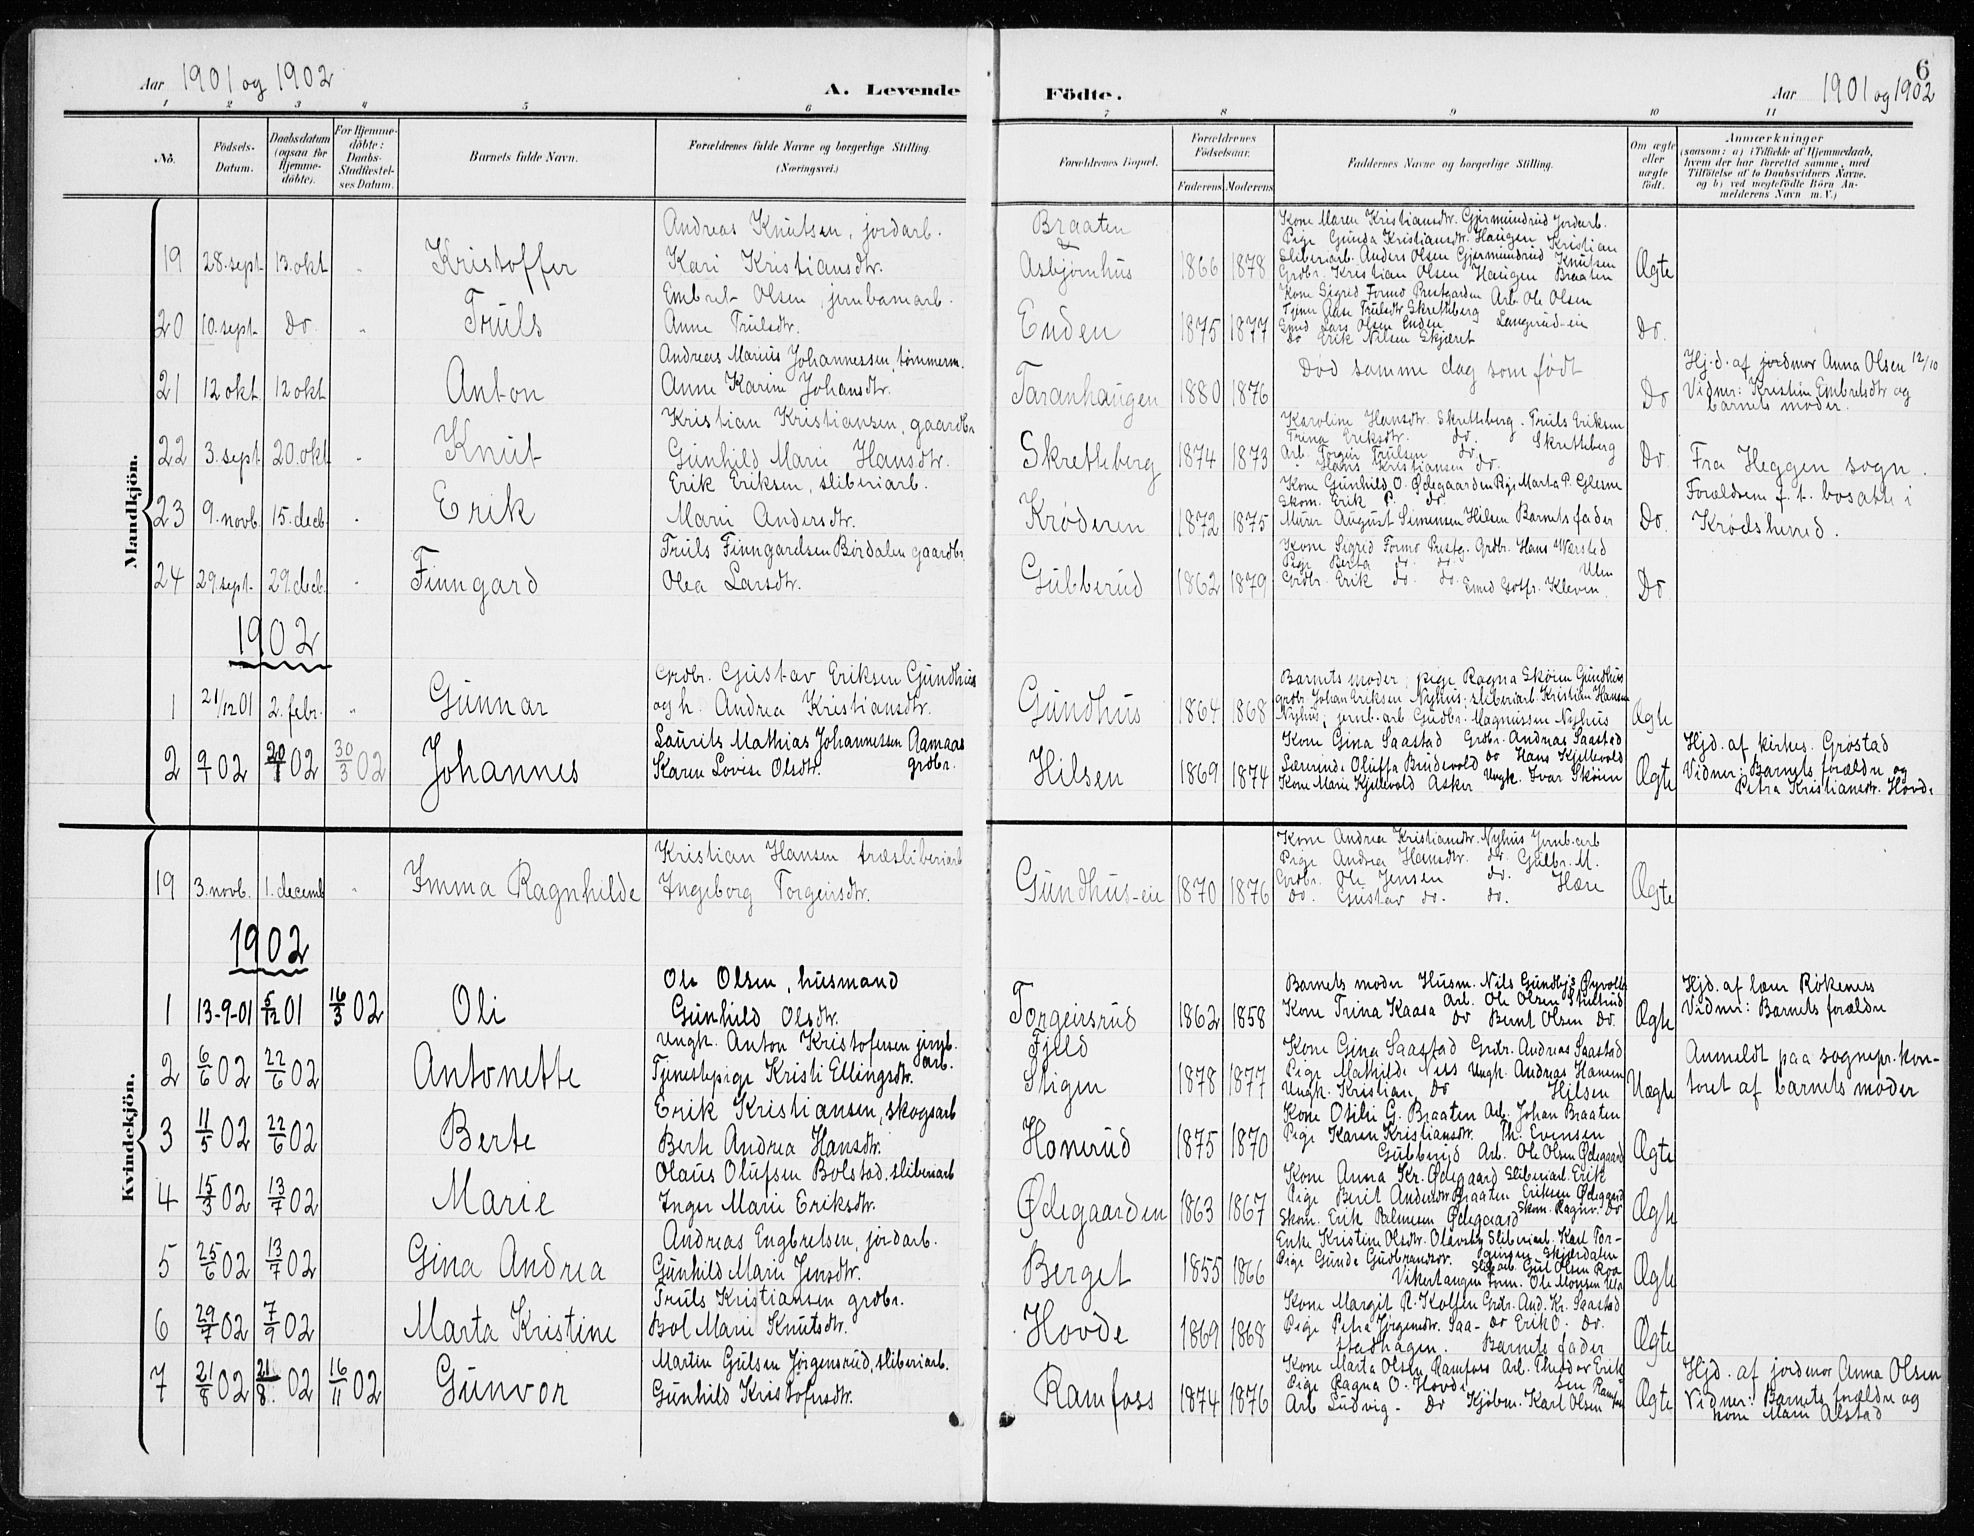 Aar 1901 og 1902
A. Levende
Födte.
Aar 1901 og 1902
6
1 2 3 4 5 6 7 8 9 10 11
No. Födsels-Datum. Daabsdatum (ogsaa for Hjemmedöbte). For Hjemmedöbte: Daabs-Stadfæstelses Datum. Barnets fulde Navn. Forældrenes fulde Navne og borgerlige Stilling. (Næringsvei.) Forældrenes Bopæl. Forældrenes Födselsaar. Faderens Moderens Faddernes Navne og borgerlige Stilling. Om ægte eller uægte födt. Anmærkninger (saasom: a) i Tilfælde af Hjemmedaab, hvem der har forrettet samme, med Tilföielse af to Daabsvidners Navne, og b) ved uægtefödte Börn Anmelderens Navn m. V.)
Mandkjön.
19 28. sept 13. okt " Kristoffer Andreas Knutsen, jordarb. Kari Kristiansdtr. Braaten Asbjørnhus 1866 1878 Kone Maren Kristiansdtr. Gjermundrud Jordarb.
Pige Gunda Kristiansdtr. Haugen Kristian
Sliberiarb. Anders Olsen Gjermundrud Knutsen
Grdbr. Kristian Olsen Haugen Braaten Ægte
20 10. sept. Do. " Truls Embret Olsen, jernbanarb. Anne Trulsdtr. Enden 1875 1877 Kone Sigrid Formo Prestgarden Arb. Ole Olsen
Tjener Aase Trulsdtr Skretteberg Langerud-eie
Gmd Lars Olsen Enden
Do Erik Nilsen Skjæret Do.
21 12 okt 12 okt Anton Andreas Marius Johannessen, tømmerm. Anne Karine Johansdtr. Taranhaugen 1880 1876 Død samme dag som født Do Hj.d. af jordmor Anna Olsen 12/10
Vidner: Kristine Embretsdtr og
barnets moder.
22 3. sept 20. okt " Knut Kristian Kristiansen, gaardbr. Gunhild Marie Hansdtr. Skretteberg 1874 1873 Karoline Hansdtr. Skretteberg. Truls Eriksen
Trina Eriksdtr. do. Skretteberg
Arb. Torger Trulsen do
" Hans Kristiansen do. Do. Fra Heggen sogn.
23 9. novb. 15. decb. " Erik Erik Eriksen, sliberiarb. Marie Andersdtr. Krøderen 1872 1875 Kone Gunhild O. Ødegaarden Pige Marta P. Glesne
Skom. Erik P. do.
Murer August Simensen Hilsen Barnets fader Do. Forældrene f. t. bosatte i
Krødsherred.
24 29. sept. 29. decb. " Finngard Truls Finngardsen Børdalen gaardbr. Olea Larsdtr. Gubberud 1862 1879 Kone Sigrid Formo Prestg. Grdbr. Hans Værsted
Pige Berta do. do. Ulen
Grdbr. Erik do. do. Gmd Gotfr. Kleven. Do
1902
1 21/12 01 2. febr. " Gunnar Grdbr. Gustav Eriksen Gundhus og h. Andrea Kristiansdtr. Gundhus 1864 1868 Barnets moder; pige Ragna Skøien Gundhus
grdbr. Johan Eriksen Nyhus; sliberiarb. Kristian Hansen
Nyhus; jernb. arb Gudbr. Magnussen Nyhus Ægte
2 9/1 02 20/1 02 30/3 02 Johannes Laurits Mathias Johannessen Aamaas grdbr. Karen Lovise Olsdtr. Hilsen 1869 1874 Kone Gina Saastad Grdbr. Andreas Saastad
Lærerinde Oluffa Brudevold do Hans Kjellevold
Kone Marie Kjellevold Asker Ungk. Ivar Skøien Ægte Hjd. af kirkes. Grøstad
Vidner: Barnets forældre og
Petra Kristiansdtr. Hovde
Kvindekjön.
19 3. novb. 1. decemb " Imma Ragnhilde Kristian Hansen træsliberiarb Ingeborg Torgeirsdtr. Gundhus-eie 1870 1876 Kone Andrea Kristiansdtr. Nyhus Jernb. arb
Pige Andrea Hansdtr. do. Gulbr. M.
Grdbr. Ole Jensen do. Hære
Do. Gustav do. do. Ægte
1902
1 13-9-01 5/12 01 16/3 02 Oli Ole Olsen, husmand Gunhild Olsdtr. Torgeirsrud 1862 1858 Barnets moder Husm. Nils Gundbjs Dyvolle
Kone Trina Kaasa Arb. Ole Olsen Skulrud
do Bernt Olsen do. Ægte Hjd. af lærer Røkeness
Vidner: Barnets forældre
2 6/6 02 22/6 02 Antonette Ungk. Anton Kristofersen jernb. arb. Tjenestepige Kristi Ellingsdtr. Fjeld Stigen 1878 1877 Kone Gina Saastad Grdr. Andreas Saastad
Pige Mathilde Nils Ungk. Andreas Hansen
Ungk. Kristian do Hilsen Uægte Anmeldt paa sognepr. kon-
toret af barnets moder
3 11/5 02 22/6 02 Berte Erik Kristiansen, skogsarb Berte Andrea Hansdtr. Honerud 1875 1870 Kone Otilie G. Braaten Arb. Johan Braaten
Pige Karen Kristiansdtr. Th. Evensen
Gubberud Arb. Ole Olsen Ødegaard Ægte
4 15/3 02 13/7 02 Marie Olaus Olufsen Bolstad, sliberiarb Inger Marie Eriksdtr. Ødegaarden 1863 1867 Kone Anna Kr. Ødegaard Sliberiarb. Erik
Pige Berit Andersdtr Braaten Eriksen Ødegaard
Skom. Erik Palmesen Ødegaard Skom. Ragnv. do Ægte
5 25/6 02 13/7 02 Gina Andrea Andreas Engbretsen, jordarb. Gunhild Marie Jensdtr. Berget 1855 1866 Enke Kristine Olsdtr. Olavsby Sliberiarb. Karl Tor-
Pige Gunde Gudbrandsdr. geirsen Skjærdalen
Slibarb Gul Olsen Roa
Vikertangen Form. Ole Monsen Ula Ægte
6 29/7 02 7/9 02 Marta Kristine Truls Kristiansen grdbr. Bol Marie Knutsdtr. Hovde 1869 1868 Kone Margit R. Kolsen Grdr. And. Kr. Saastad
Pige Petra Jørgensdtr. Saa- do Erik O. do.
stadhagen. Barnets fader Ægte
7 21/8 02 21/8. 02 16/11 02 Gunvor Martin Gulsen Jørgensrud, sliberiarb. Gunhild Kristofersdtr. Ramfoss 1874 1876 Kone Marta Olsen Ramfoss Arb. Theodor Erik-
Pige Ragna O. Hovde sen Ramfos
Arb Ludvig - do Kjøbm. Karl Olsen Ægte Hjd. af jordmor Anna Olsen
Vidner: Barnets forældre og
kone Marie Alstad